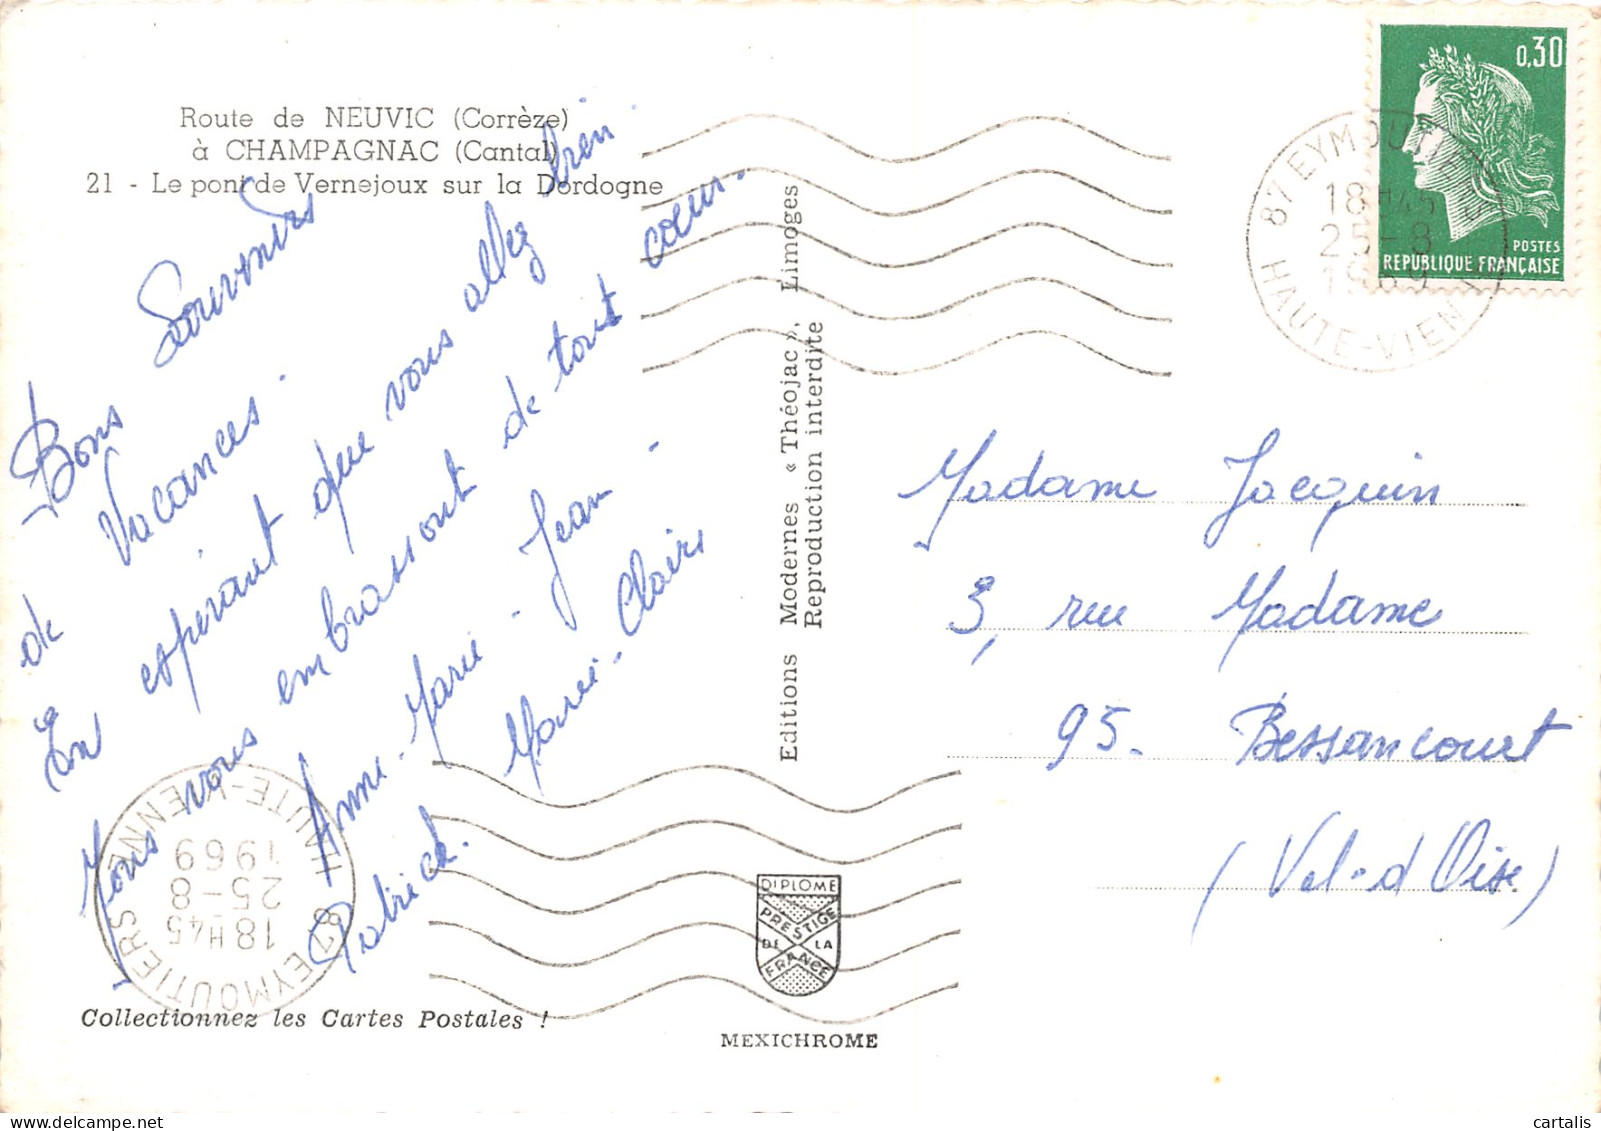 Route de NEUVIC (Corrèze)
à CHAMPAGNAC (Cantal)
21 - Le pont de Vernejoux sur la Dordogne
Bons Souvenirs
de Vacances.
En espérant que vous allez bien
Nous vous embrassont de tout cœur.
Anne-Marie - Jean -
Patrick. Marie-Claire
Collectionnez les Cartes Postales !
Editions Modernes « Théojac », Limoges
Reproduction interdite
DIPLOME
PRESTIGE
DE LA
FRANCE
MEXICHROME
0,30
POSTES
REPUBLIQUE FRANÇAISE
87 EYMOUTIERS
18H45
25-8
1969
HAUTE-VIENNE
Madame Jacquin
3, rue Madame
95. Bessancourt
(Val-d'Oise)
87 EYMOUTIERS
18H45
25-8
1969
HAUTE-VIENNE
cartalis